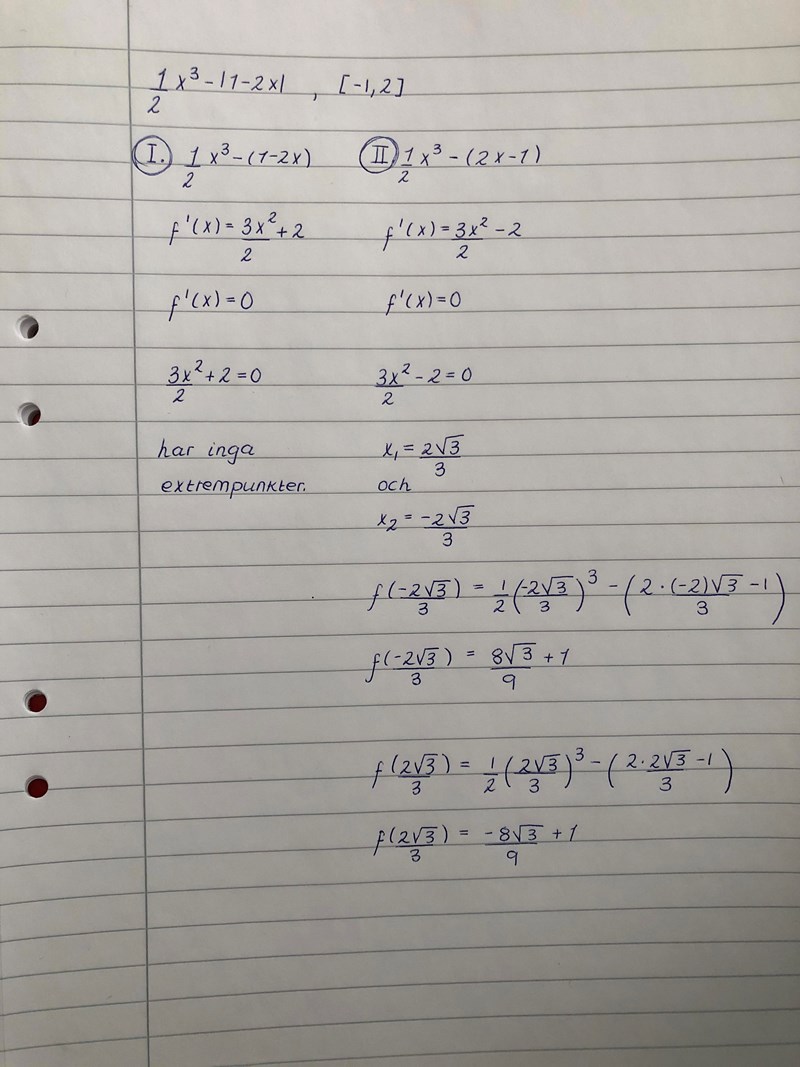 1/2 x³ - |1-2x| , [-1,2]
I. 1/2 x³ - (1-2x) II 1/2 x³ - (2x-1)
f'(x) = 3x²/2 + 2 f'(x) = 3x²/2 - 2
f'(x) = 0 f'(x) = 0
3x²/2 + 2 = 0 3x²/2 - 2 = 0
har inga x₁ = 2√3/3
extrempunkter. och
x₂ = -2√3/3
f(-2√3/3) = 1/2 (-2√3/3)³ - (2·(-2)√3/3 - 1)
f(-2√3/3) = 8√3/9 + 1
f(2√3/3) = 1/2 (2√3/3)³ - (2·2√3/3 - 1)
f(2√3/3) = -8√3/9 + 1